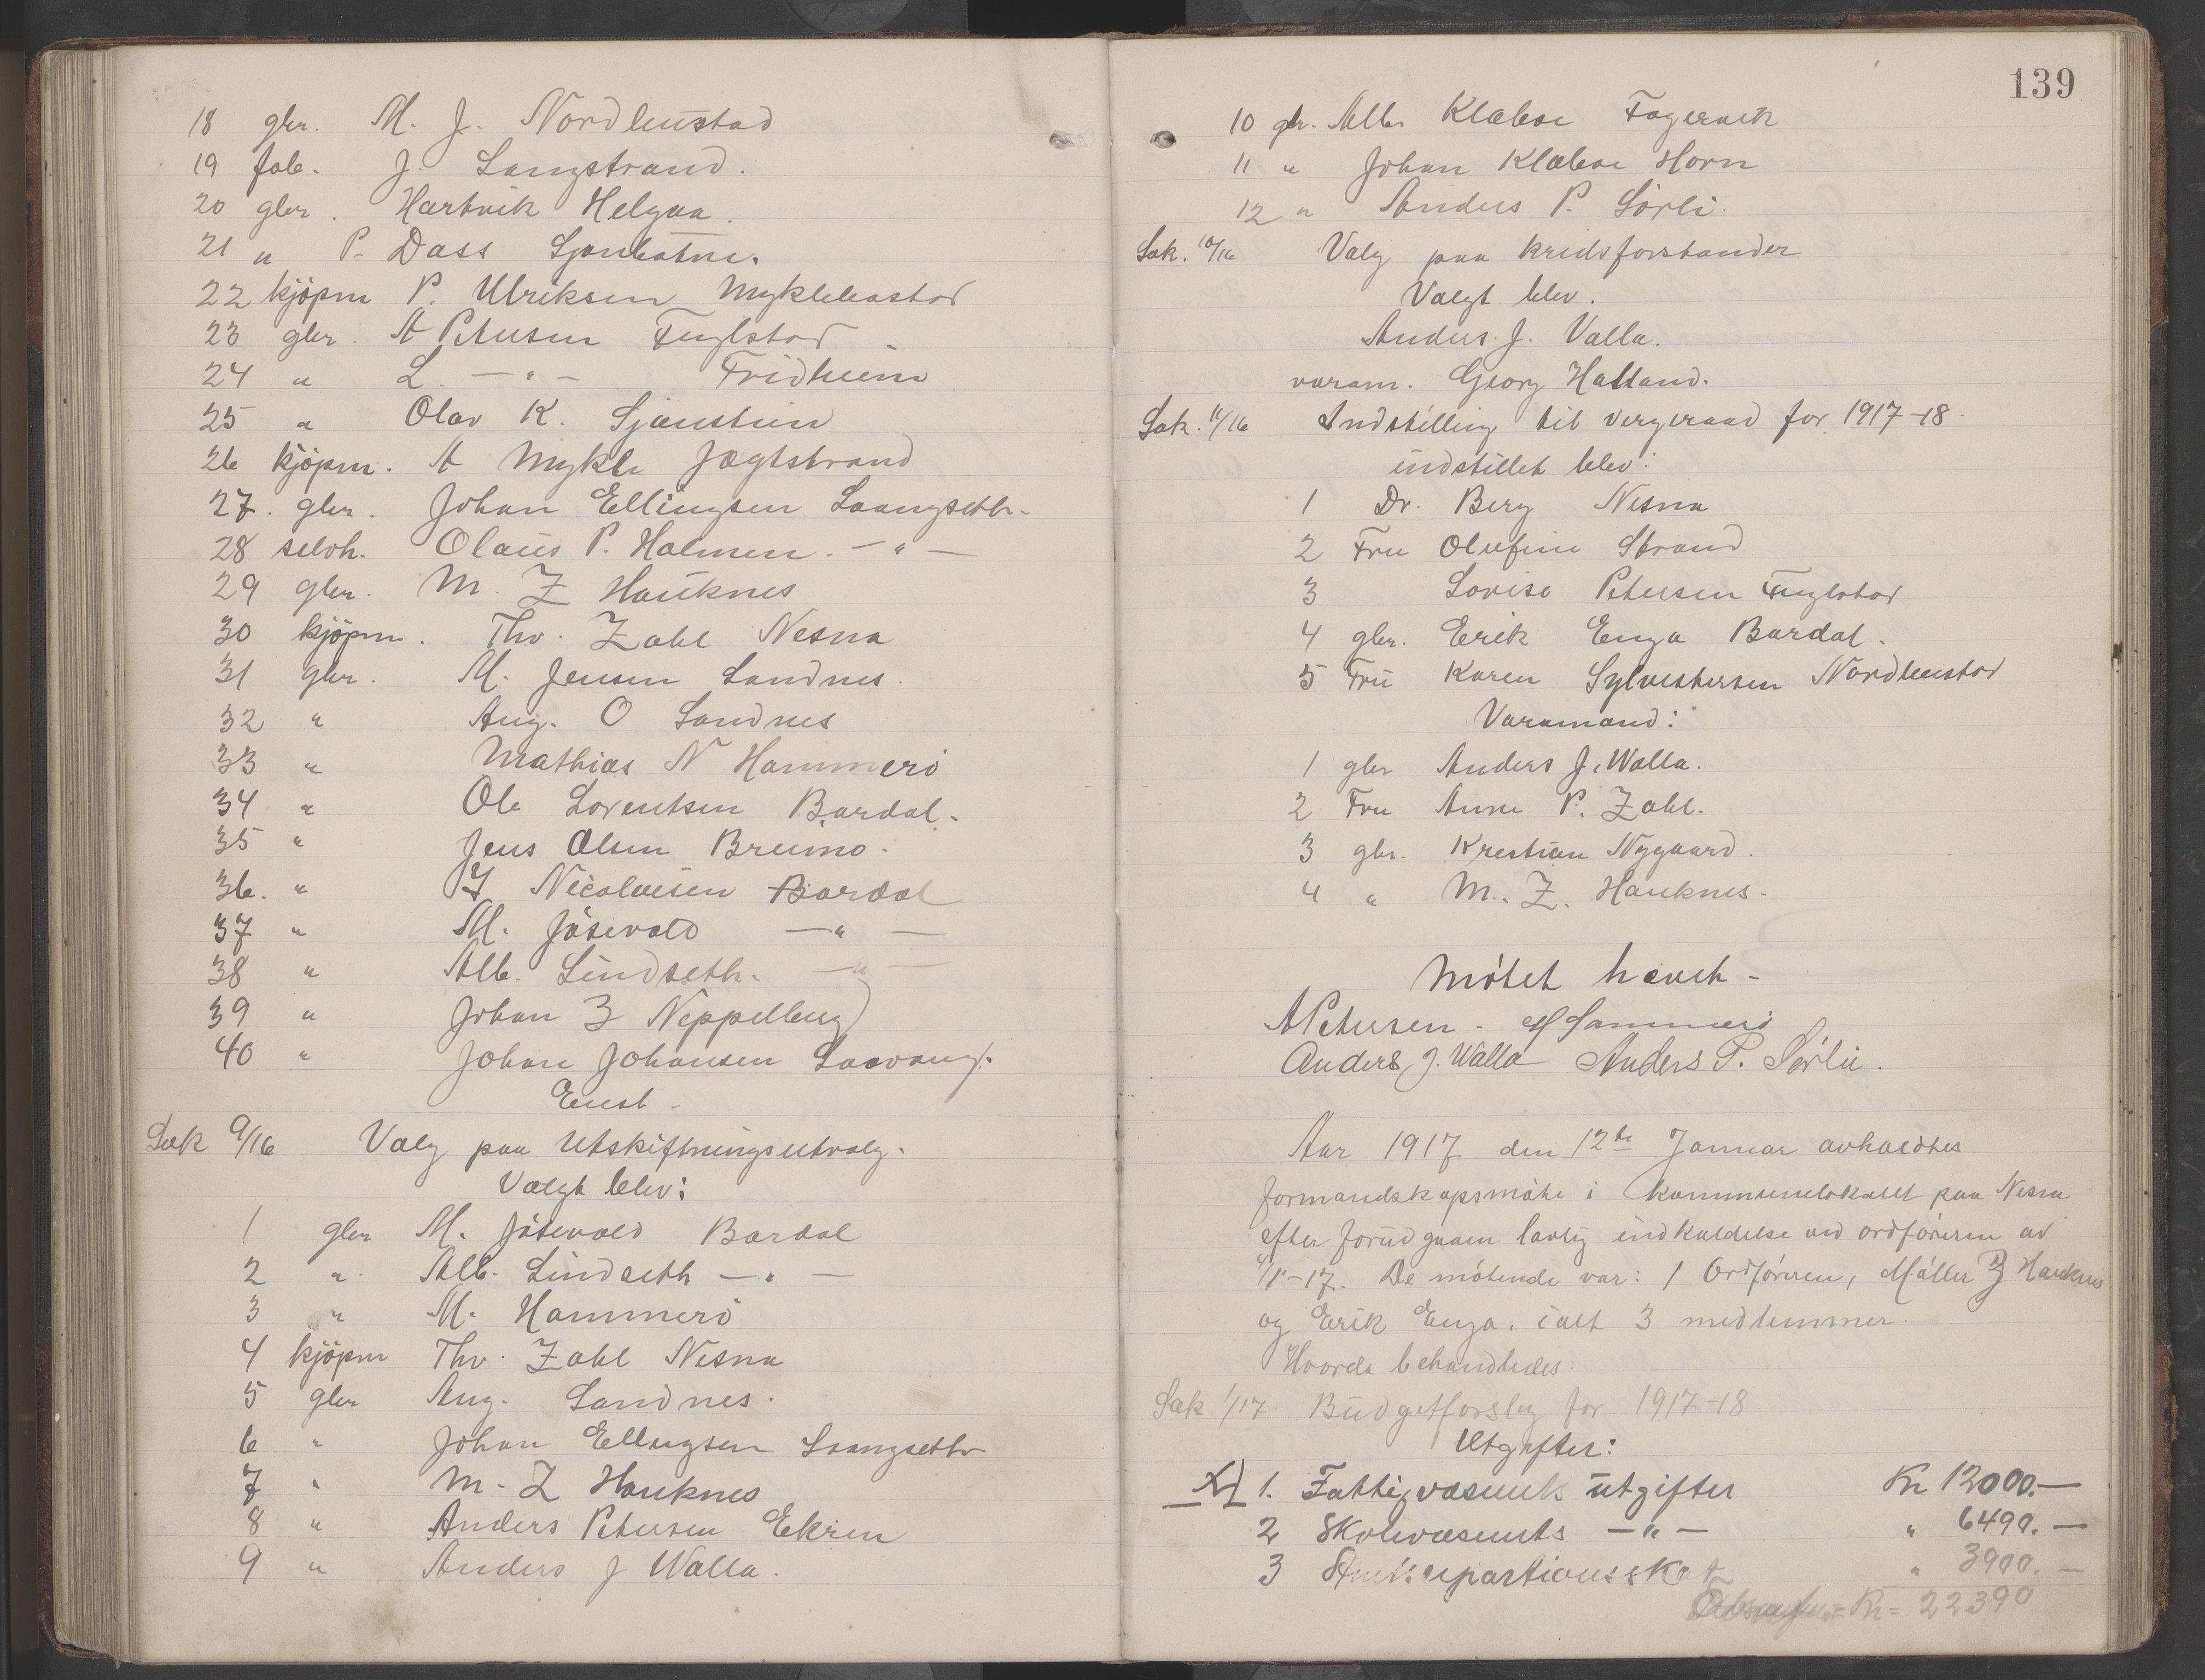 18 gbr. M. J. Nordbustad
19 fab. J. Langstrand.
20 gbr. Hartvik Helgaa.
21 " P. Dass Sjonbotne.
22 kjöpm P. Ulriksen Myklebostad
23 gbr. A Petersen Fuglstad
24 " L. — " — Fridheim
25 " Olav K. Sjaastein
26 kjöpm. A Mykle Jægtstrand
27. gbr. Johan Ellingsen Laangseth.
28 selvh. Olaus P. Holmen. — " —
29 gbr. M. Z Hauknes
30 kjöpm. Thv. Zahl Nesna
31 gbr. M. Jensen Sandnes.
32 " Aug. O Sandnes
33 " Mathias N Hammerö
34 " Ole Lorentsen Bardal.
35 " Jens Olsen Breimo.
36. " J Nicolaisen Bardal
37 " M. Jösevold — " —
38 " Alb. Lindseth. — " —
39 " Johan Z Neppelberg
40 " Johan Johansen Laavong.
Enst.
Sak 9/16 Valg paa Utskiftningsutvalg.
Valgt blev:
1 gbr M. Jösevold Bardal
2 " Alb. Lindseth — " —
3 " M. Hammerö
4 kjöpm Thv. Zahl Nesna
5 gbr Aug. Sandnes.
6 " Johan Ellingsen Laangseth
7 " M. Z Hauknes
8 " Anders Petersen Ekren
9 " Anders J Walla.
139
10 gbr. Alb. Klæboe Fagervik
11 " Johan Klæboe Horn
12 " Anders P. Sörli.
Sak. 10/16 Valg paa kredsforstander
Valgt blev.
Anders. J. Valla.
varam. Georg Hatland.
Sak. 11/16 Indstilling til vergeraad for 1917-18.
indstillet blev:
1 Dr. Berg Nesna
2 Fru Olufine Strand
3 Lovise Petersen Fuglstad
4 gbr. Erik Enga Bardal.
5 Fru Karen Sylvestersen Nordbustad
Varamænd:
1 gbr Anders J. Walla.
2 Fru Anne P. Zahl.
3 gbr. Krestian Nygaard.
4 " M. Z. Hauknes.
Mötet hævet -
A Petersen - M Hammerö
Anders J. Walla Anders P. Sörlie.
Aar 1917 den 12te Januar avholdtes
formandskapsmöte i kommunelokalet paa Nesna
efter forudgaaen lovlig indkaldelse ved ordföreren av
/1-17. De mötende var: 1 Ordföreren, Möller Z Hauknes
og Erik Enga. ialt 3 medlemmer.
Hvorda behandledes:
Sak 1/17 Budgetforslag for 1917-18
Utgifter:
1. Fattigvæsenets utgifter Kr 12000.—
2 Skolevæsenets — " — " 6490.—
3 Amtsrepartionsskat " 3900.—
Kr = 22390